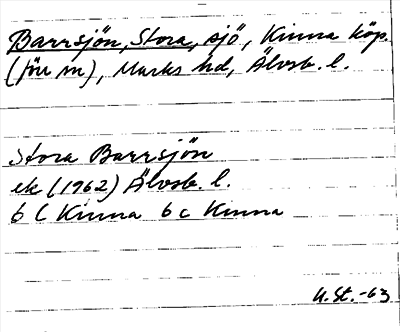 Barrsjön, Stora, sjö, Kinna köp.
(förr m), Marks hd, Älvsb. l.
Stora Barrsjön
ek (1962) Älvsb. l.
6 C Kinna 6 c Kinna
U. St. -63